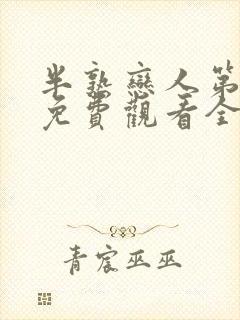 半熟戀人第
免費觀看全
青宸巫巫